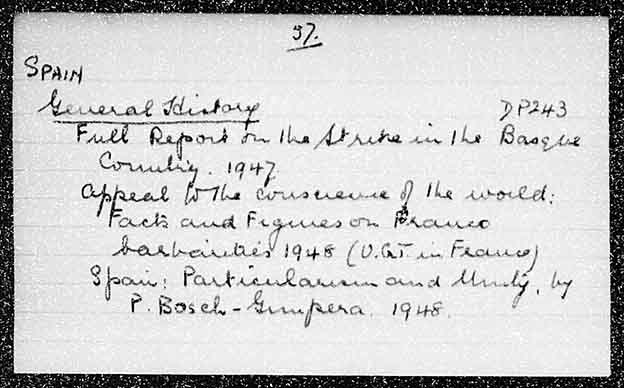 37.
SPAIN
General History DP243
Full Report on the Strike in the Basque
Country. 1947
Appeal to the conscience of the world:
Facts and Figures on Franco
barbarities 1948 (U.G.T. in France)
Spain: Particularism and Unity, by
P. Bosch-Gimpera. 1948.